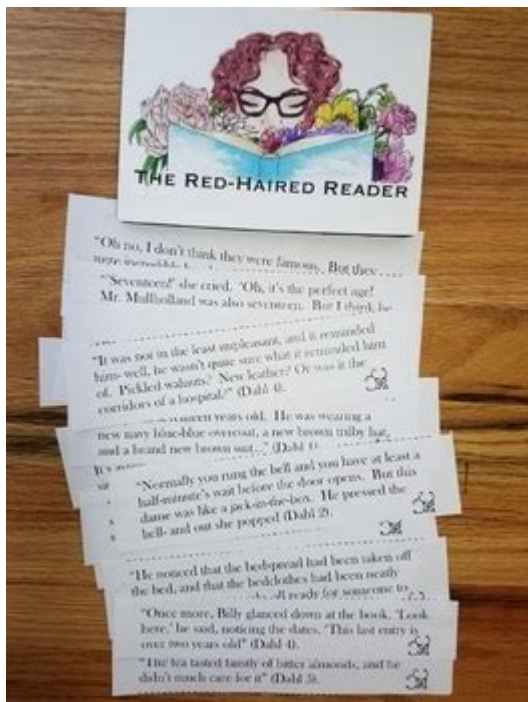 THE RED-HAIRED READER
"Oh no, I don't think they were famous. But they
"'Seventeen!' she cried. 'Oh, it's the perfect age!
Mr. Mullholland was also seventeen. But I think he
"It was not in the least unpleasant, and it reminded
him- well, he wasn't quite sure what it reminded him
of. Pickled walnuts? New leather? Or was it the
corridors of a hospital?" (Dahl 4).
years old. He was wearing a
new navy blue-blue overcoat, a new brown trilby hat,
and a brand new brown suit..." (Dahl 1)
"Normally you rang the bell and you have at least a
half-minute's wait before the door opens. But this
dame was like a jack-in-the-box. He pressed the
bell- and out she popped (Dahl 2).
"He noticed that the bedspread had been taken off
the bed, and that the bedclothes had been neatly
all ready for someone to
"Once more, Billy glanced down at the book. 'Look
here,' he said, noticing the dates. 'This last entry is
over two years old" (Dahl 4).
"The tea tasted faintly of bitter almonds, and he
didn't much care for it" (Dahl 5).